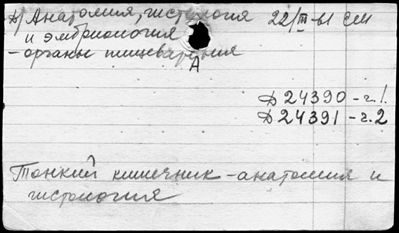 д) Анатомия, гистология 22/III-61 см
и эмбриология
- органы пищеварения
А
Д 24390 - г.1.
Д 24391 - г.2
Тонкий кишечник - анатомия и
гистология